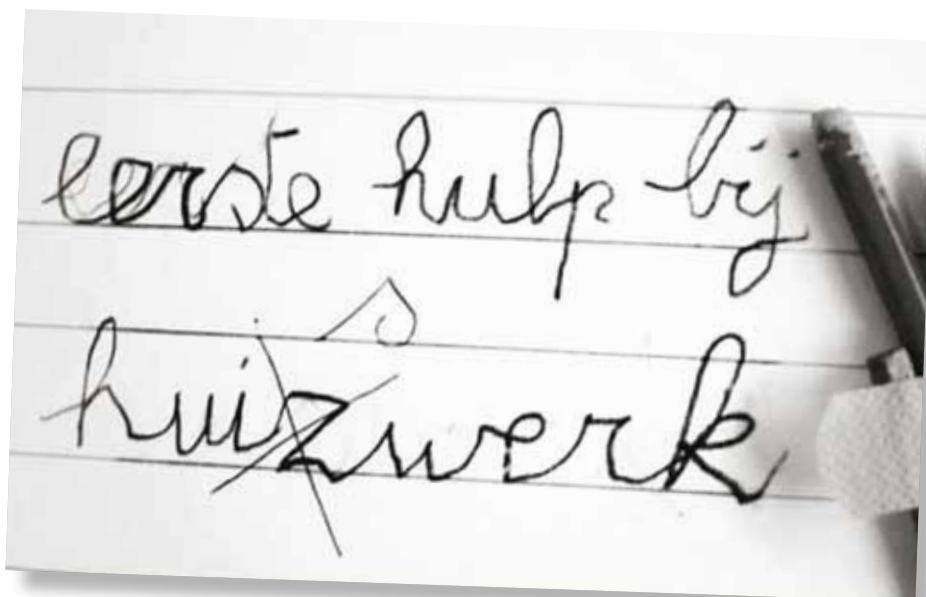 eerste hulp bij
s
huizwerk